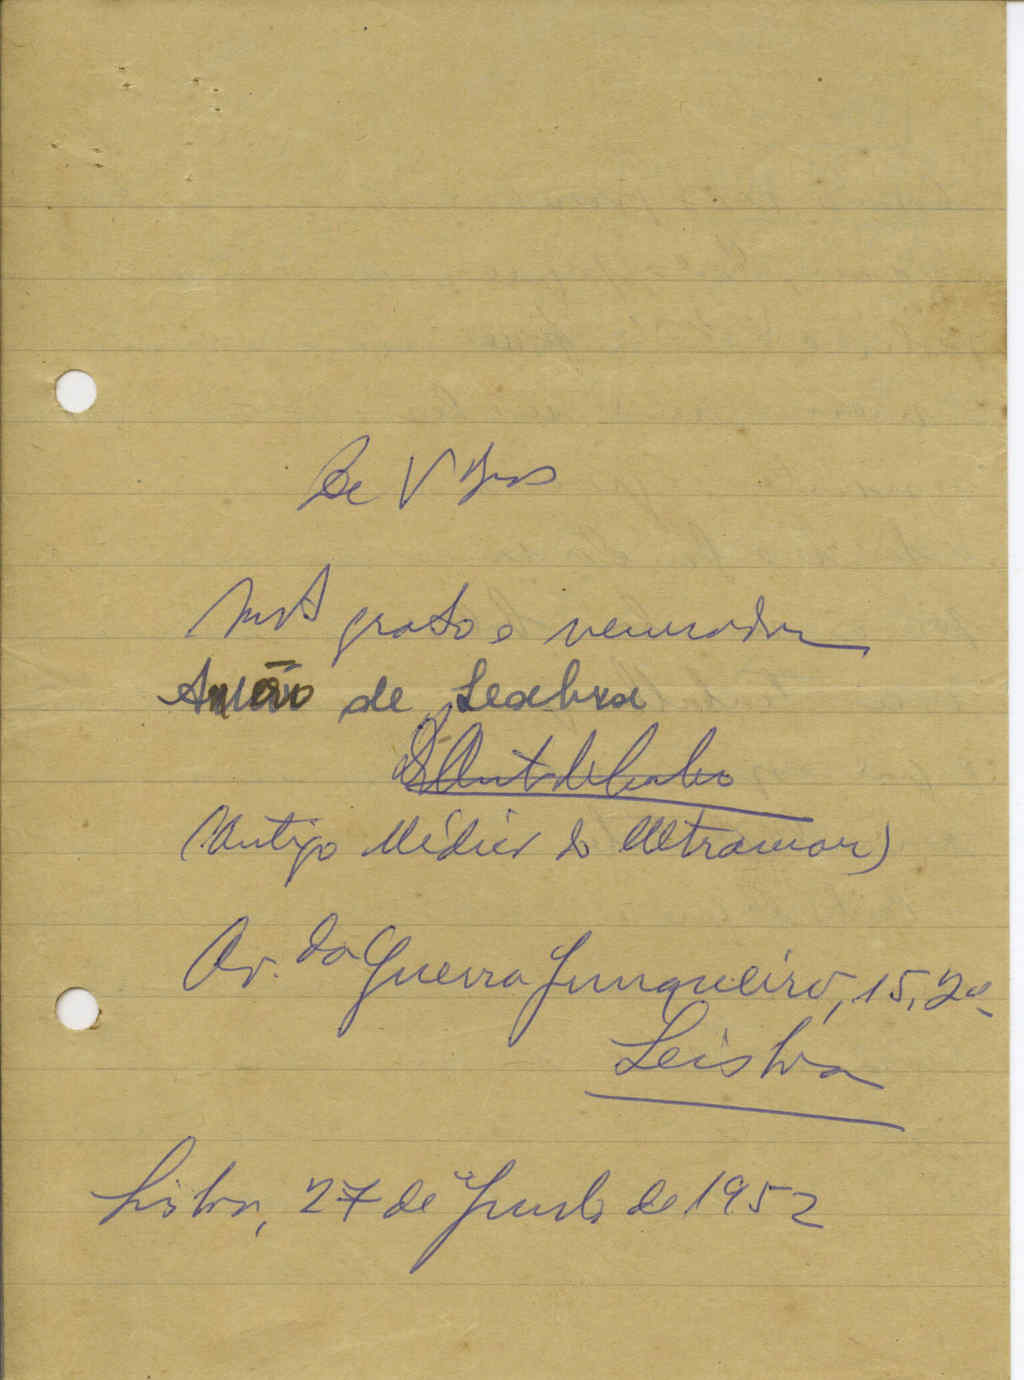 De V Exas
Mtº grato e venerador
de Seabra
(Antigo Médico do Ultramar)
Av. da Guerra Junqueiro, 15, 2º
Lisboa
Lisboa, 27 de Junho de 1952